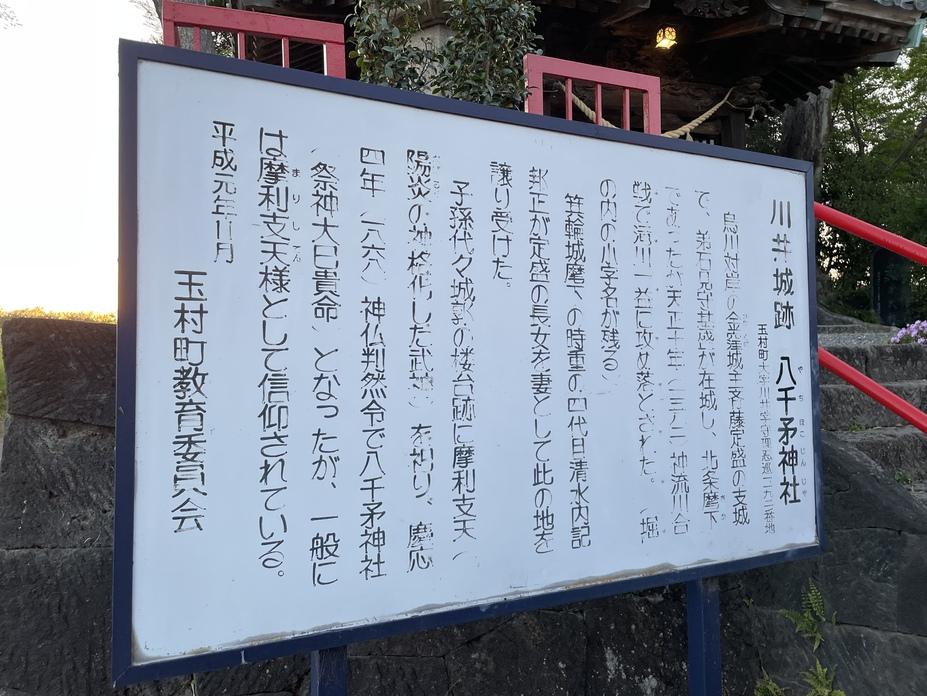 川井城跡 八千矛神社
やちほこじんじゃ
玉村町大字川井字
番地
烏川対岸の金窪城主斉藤定盛の支城
で、弟石見守基盛が在城し、北条麾下
であったが天正十年(一五八二)神流川合
戦で滝川一益に攻め落とされた。(堀
の内の小字名が残る)
箕輪城麾下の時重の四代目清水内記
邦正が定盛の長女を妻として此の地を
譲り受けた。
子孫代々城郭の櫓台跡に摩利支天(
陽炎の神格化した武神)を祠り、慶応
四年(一八六八)神仏判然令で八千矛神社
(祭神大已貴命)となったが、一般に
は摩利支天様として信仰されている。
まりしてん
平成元年十一月
玉村町教育委員会